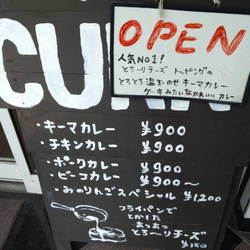 OPEN
人気NO1!
とろ〜りチーズ トッピングの
とろとろ温玉のせキーマカレー
ケーキみたいなかわいいカレー
CU
・キーマカレー ¥900
・チキンカレー ¥900
・ポークカレー ¥900
・ビーフカレー ¥900〜
・みのりんごスペシャル ¥1200
フライパンで
とかした
あつあつ
とろ〜りチーズ
¥150